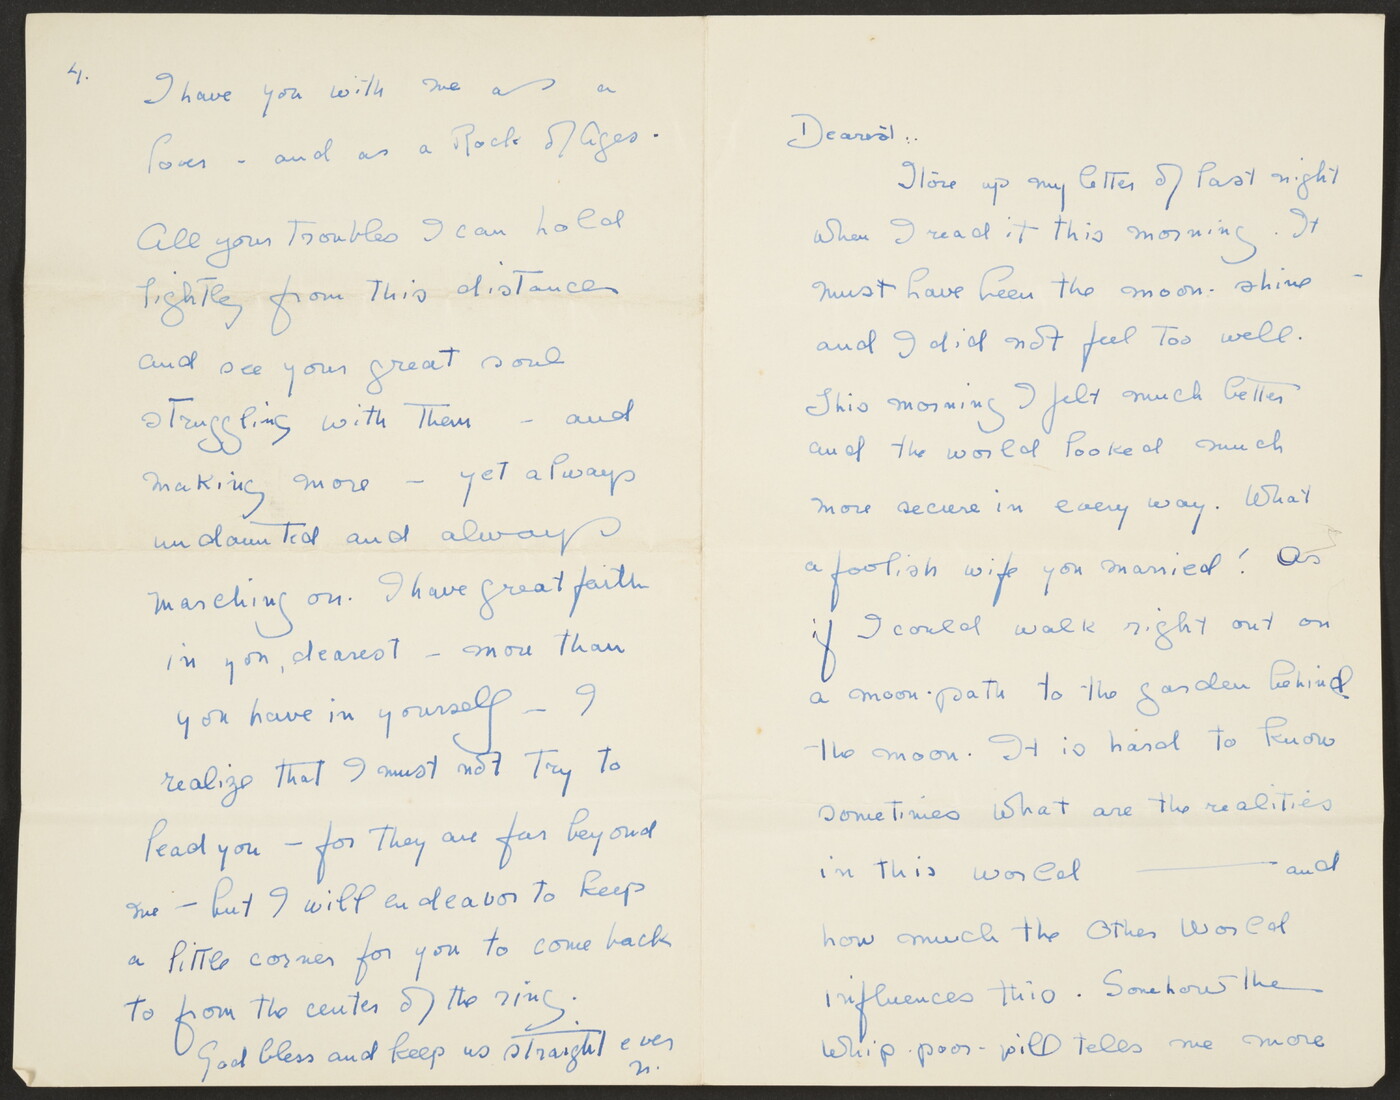 4.
I have you with me as a
lover - and as a Rock of Ages.
All your troubles I can hold
lightly from this distance
and see your great soul
struggling with them - and
making more - yet always
undaunted and always
marching on. I have great faith
in you, dearest - more than
you have in yourself - I
realize that I must not try to
lead you - for they are far beyond
me - but I will endeavor to keep
a little corner for you to come back
to from the center of the ring.
God bless and keep us straight ever
n.
Dearest:
I tore up my letter of last night
when I read it this morning. It
must have been the moon-shine -
and I did not feel too well.
This morning I felt much better
and the world looked much
more secure in every way. What
a foolish wife you married! As
if I could walk right out on
a moon-path to the garden behind
the moon. It is hard to know
sometimes what are the realities
in this world — and
how much the Other World
influences this. Somehow the
whip-poor-will tells me more